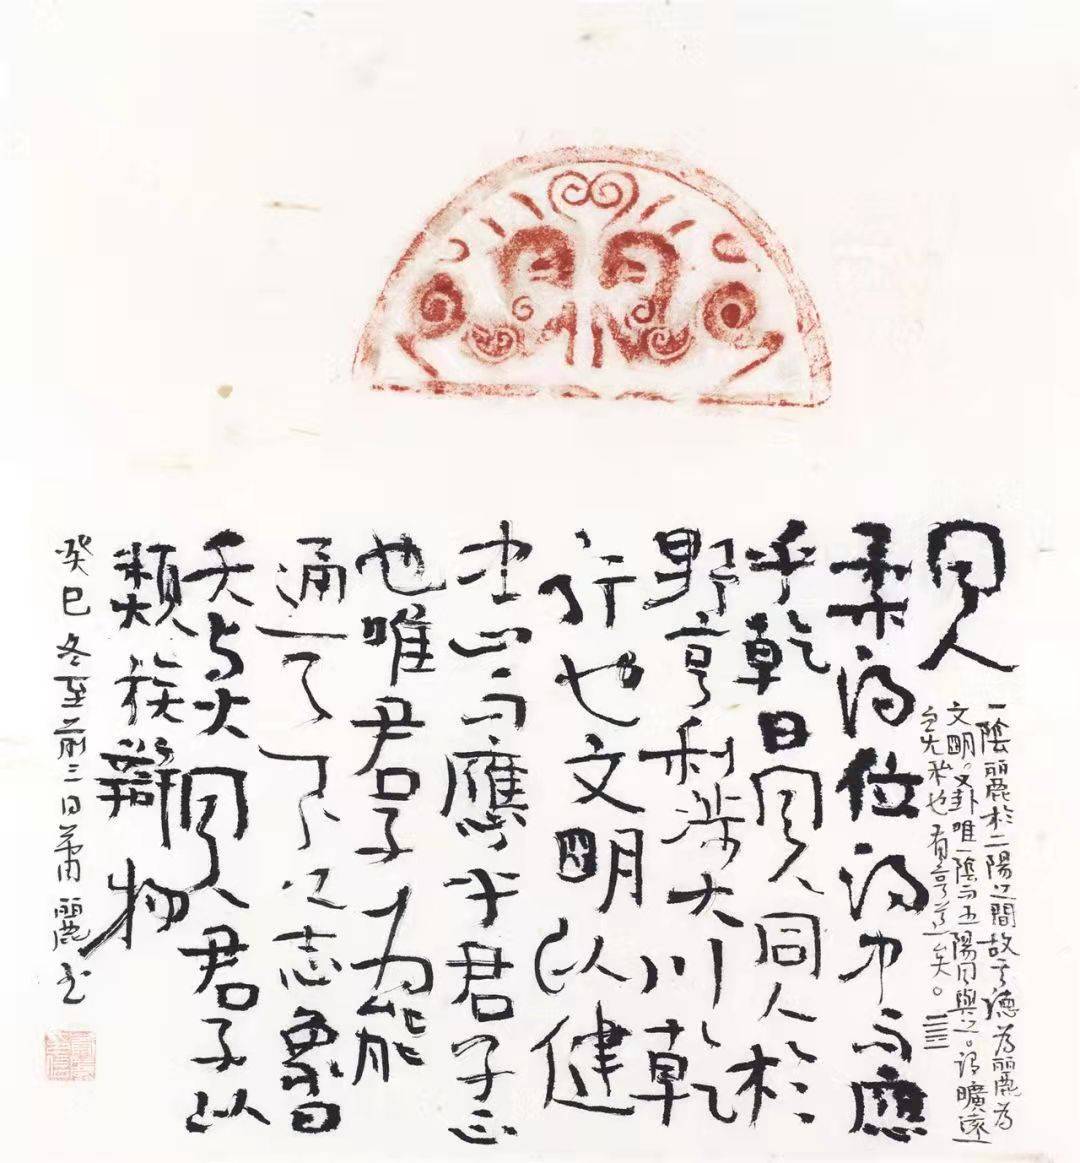 同人
一陰麗於二陽之間故其德為麗為
文明。又卦唯一陰而五陽同與之。得曠遠
無私也有亨道矣。䷌
柔得位得中而應
乎乾曰同人同人於
野亨利涉大川乾
行也文明以健
中正而應乎君子正
也唯君子為能
通天下之志象曰
天与火同人君子以
類族辯物
癸巳冬至前三日蕭麗书